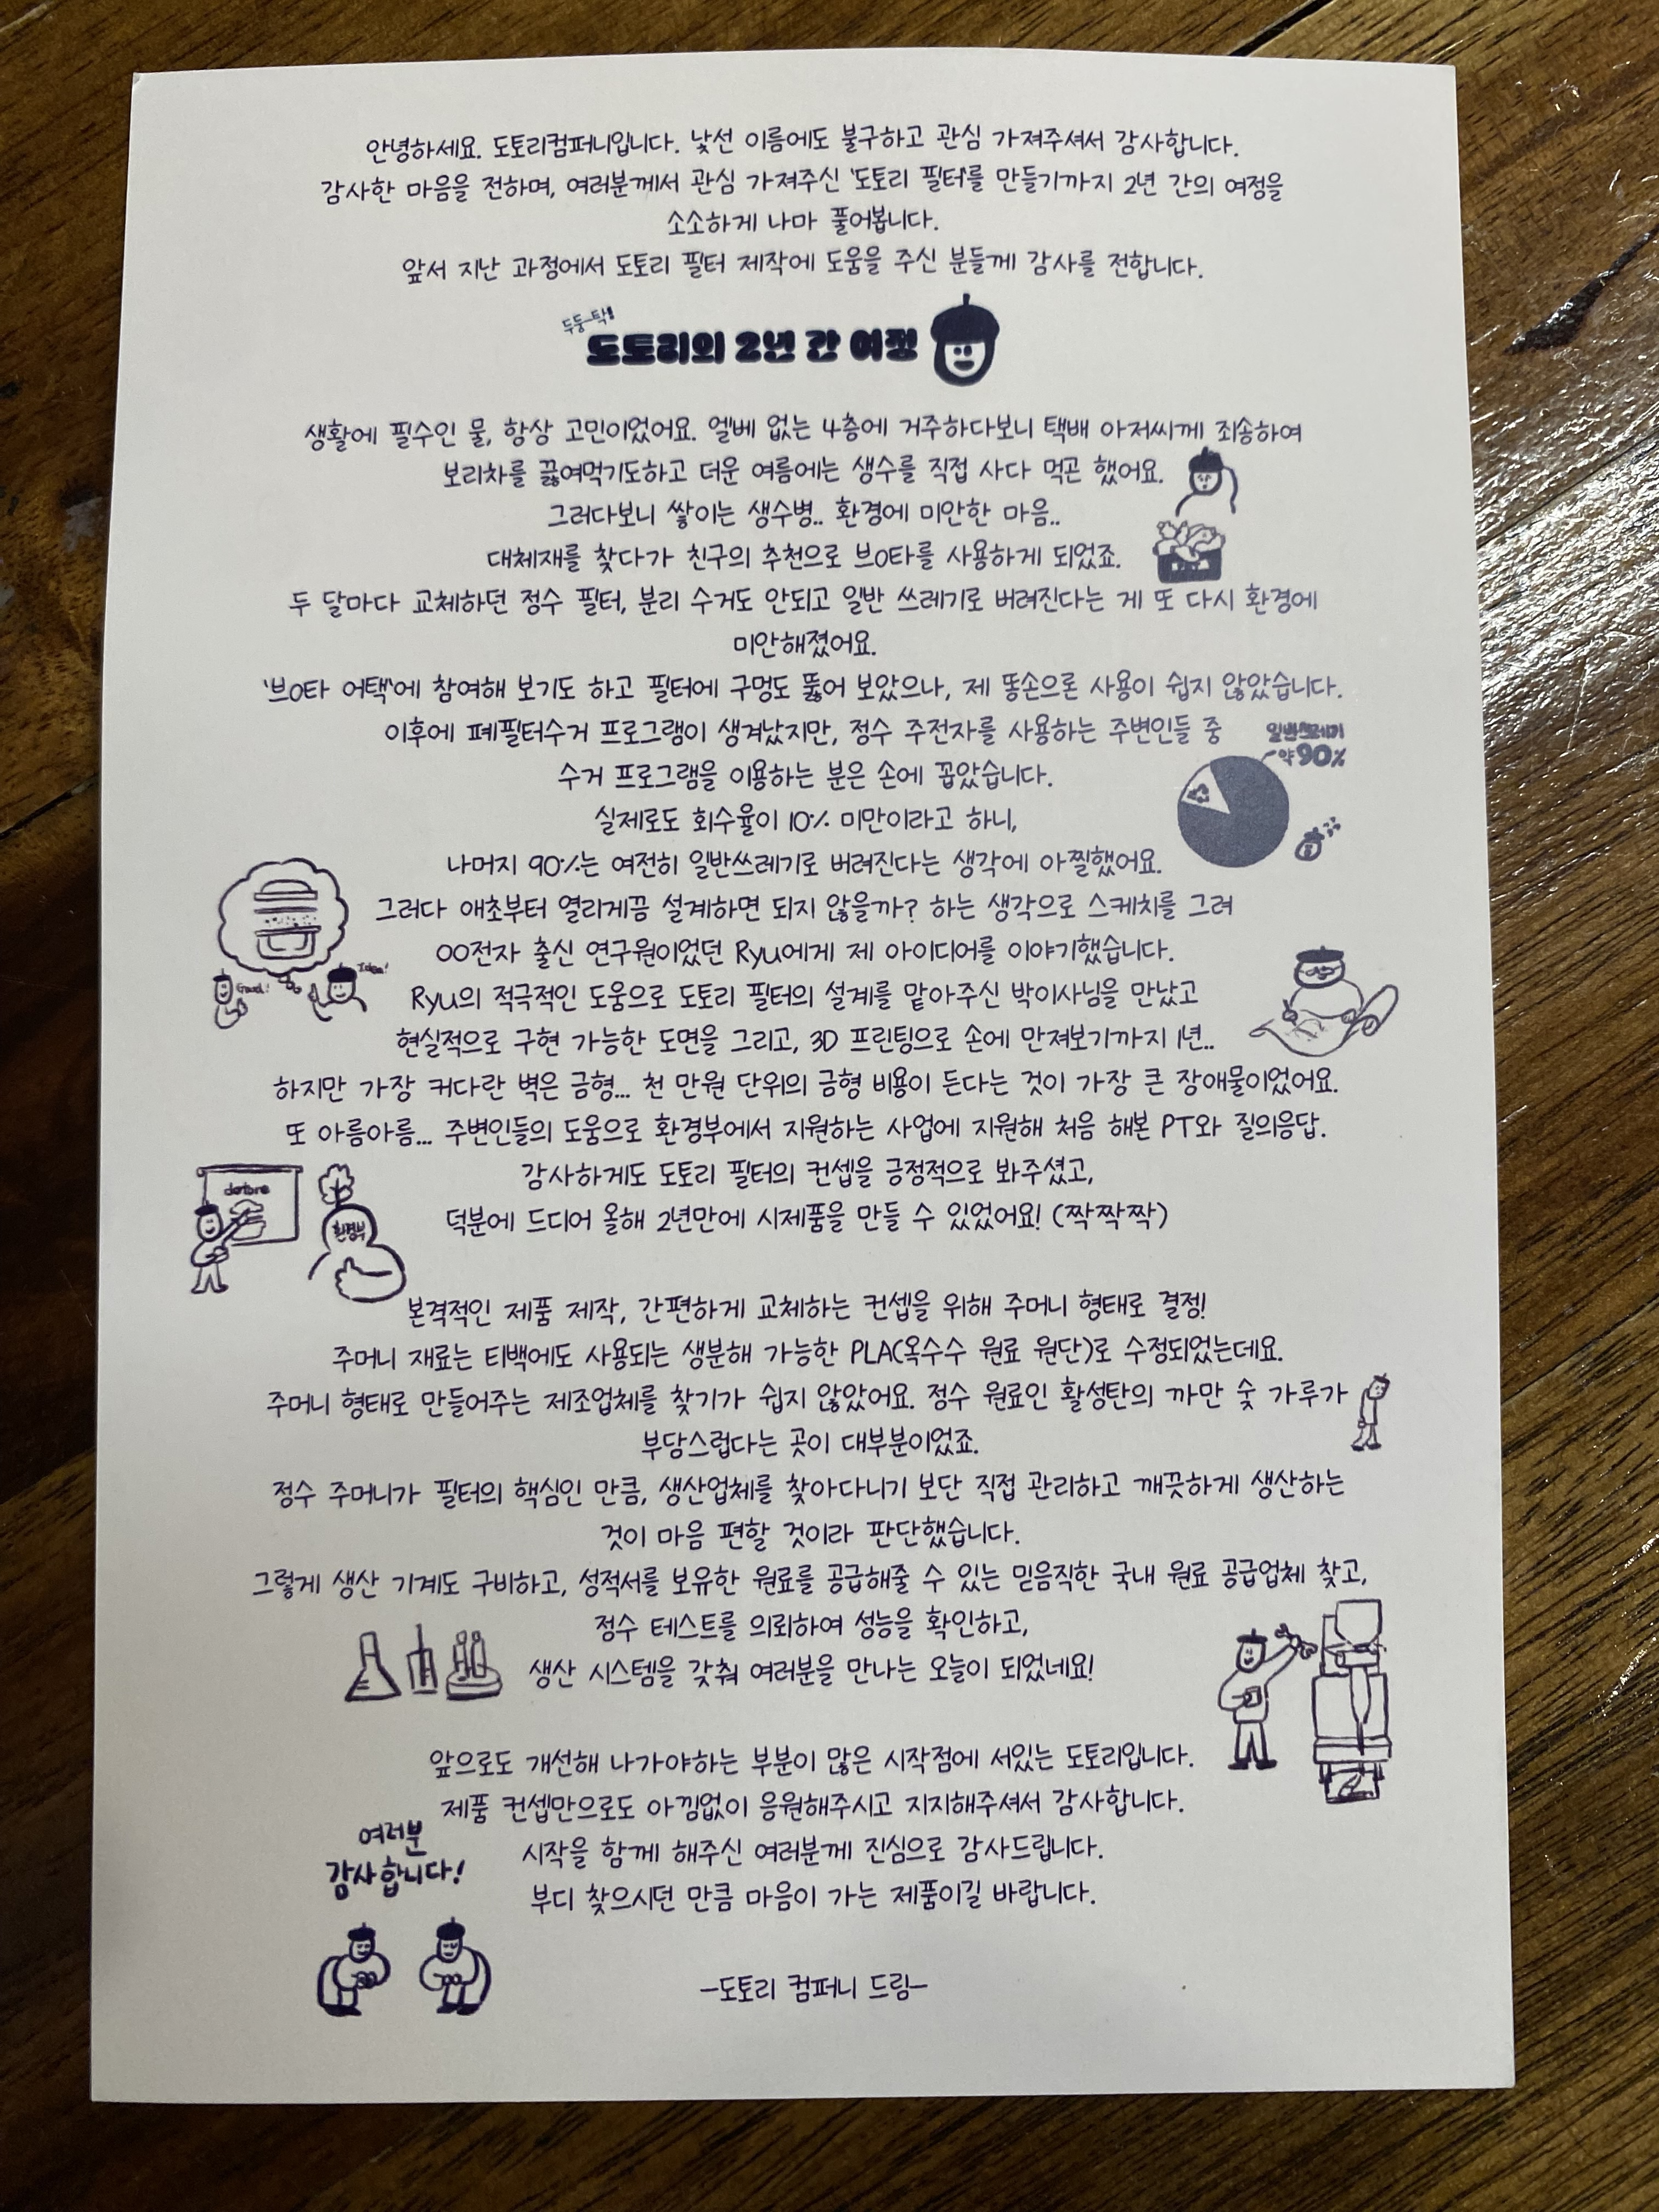 안녕하세요. 도토리컴퍼니입니다. 낯선 이름에도 불구하고 관심 가져주셔서 감사합니다.
감사한 마음을 전하며, 여러분께서 관심 가져주신 '도토리 필터'를 만들기까지 2년 간의 여정을
소소하게 나마 풀어봅니다.
앞서 지난 과정에서 도토리 필터 제작에 도움을 주신 분들께 감사를 전합니다.
두둥-탁!
도토리의 2년 간 여정
생활에 필수인 물, 항상 고민이었어요. 엘베 없는 4층에 거주하다보니 택배 아저씨께 죄송하여
보리차를 끓여먹기도하고 더운 여름에는 생수를 직접 사다 먹곤 했어요.
그러다보니 쌓이는 생수병.. 환경에 미안한 마음..
대체재를 찾다가 친구의 추천으로 브O타를 사용하게 되었죠.
두 달마다 교체하던 정수 필터, 분리 수거도 안되고 일반 쓰레기로 버려진다는 게 또 다시 환경에
미안해졌어요.
'브O타 어택'에 참여해 보기도 하고 필터에 구멍도 뚫어 보았으나, 제 똥손으론 사용이 쉽지 않았습니다.
이후에 폐필터수거 프로그램이 생겨났지만, 정수 주전자를 사용하는 주변인들 중
일반쓰레기
약 90%
수거 프로그램을 이용하는 분은 손에 꼽았습니다.
실제로도 회수율이 10% 미만이라고 하니,
나머지 90%는 여전히 일반쓰레기로 버려진다는 생각에 아찔했어요.
그러다 애초부터 열리게끔 설계하면 되지 않을까? 하는 생각으로 스케치를 그려
OO전자 출신 연구원이었던 Ryu에게 제 아이디어를 이야기했습니다.
Good!
Idea!
Ryu의 적극적인 도움으로 도토리 필터의 설계를 맡아주신 박이사님을 만났고
현실적으로 구현 가능한 도면을 그리고, 3D 프린팅으로 손에 만져보기까지 1년..
하지만 가장 커다란 벽은 금형... 천 만원 단위의 금형 비용이 든다는 것이 가장 큰 장애물이었어요.
또 아름아름... 주변인들의 도움으로 환경부에서 지원하는 사업에 지원해 처음 해본 PT와 질의응답.
감사하게도 도토리 필터의 컨셉을 긍정적으로 봐주셨고,
환경부
덕분에 드디어 올해 2년만에 시제품을 만들 수 있었어요! (짝짝짝)
본격적인 제품 제작, 간편하게 교체하는 컨셉을 위해 주머니 형태로 결정!
주머니 재료는 티백에도 사용되는 생분해 가능한 PLA(옥수수 원료 원단)로 수정되었는데요.
주머니 형태로 만들어주는 제조업체를 찾기가 쉽지 않았어요. 정수 원료인 활성탄의 까만 숯 가루가
부담스럽다는 곳이 대부분이었죠.
정수 주머니가 필터의 핵심인 만큼, 생산업체를 찾아다니기 보단 직접 관리하고 깨끗하게 생산하는
것이 마음 편할 것이라 판단했습니다.
그렇게 생산 기계도 구비하고, 성적서를 보유한 원료를 공급해줄 수 있는 믿음직한 국내 원료 공급업체 찾고,
정수 테스트를 의뢰하여 성능을 확인하고,
생산 시스템을 갖춰 여러분을 만나는 오늘이 되었네요!
앞으로도 개선해 나가야하는 부분이 많은 시작점에 서있는 도토리입니다.
제품 컨셉만으로도 아낌없이 응원해주시고 지지해주셔서 감사합니다.
시작을 함께 해주신 여러분께 진심으로 감사드립니다.
부디 찾으시던 만큼 마음이 가는 제품이길 바랍니다.
여러분
감사합니다!
-도토리 컴퍼니 드림-